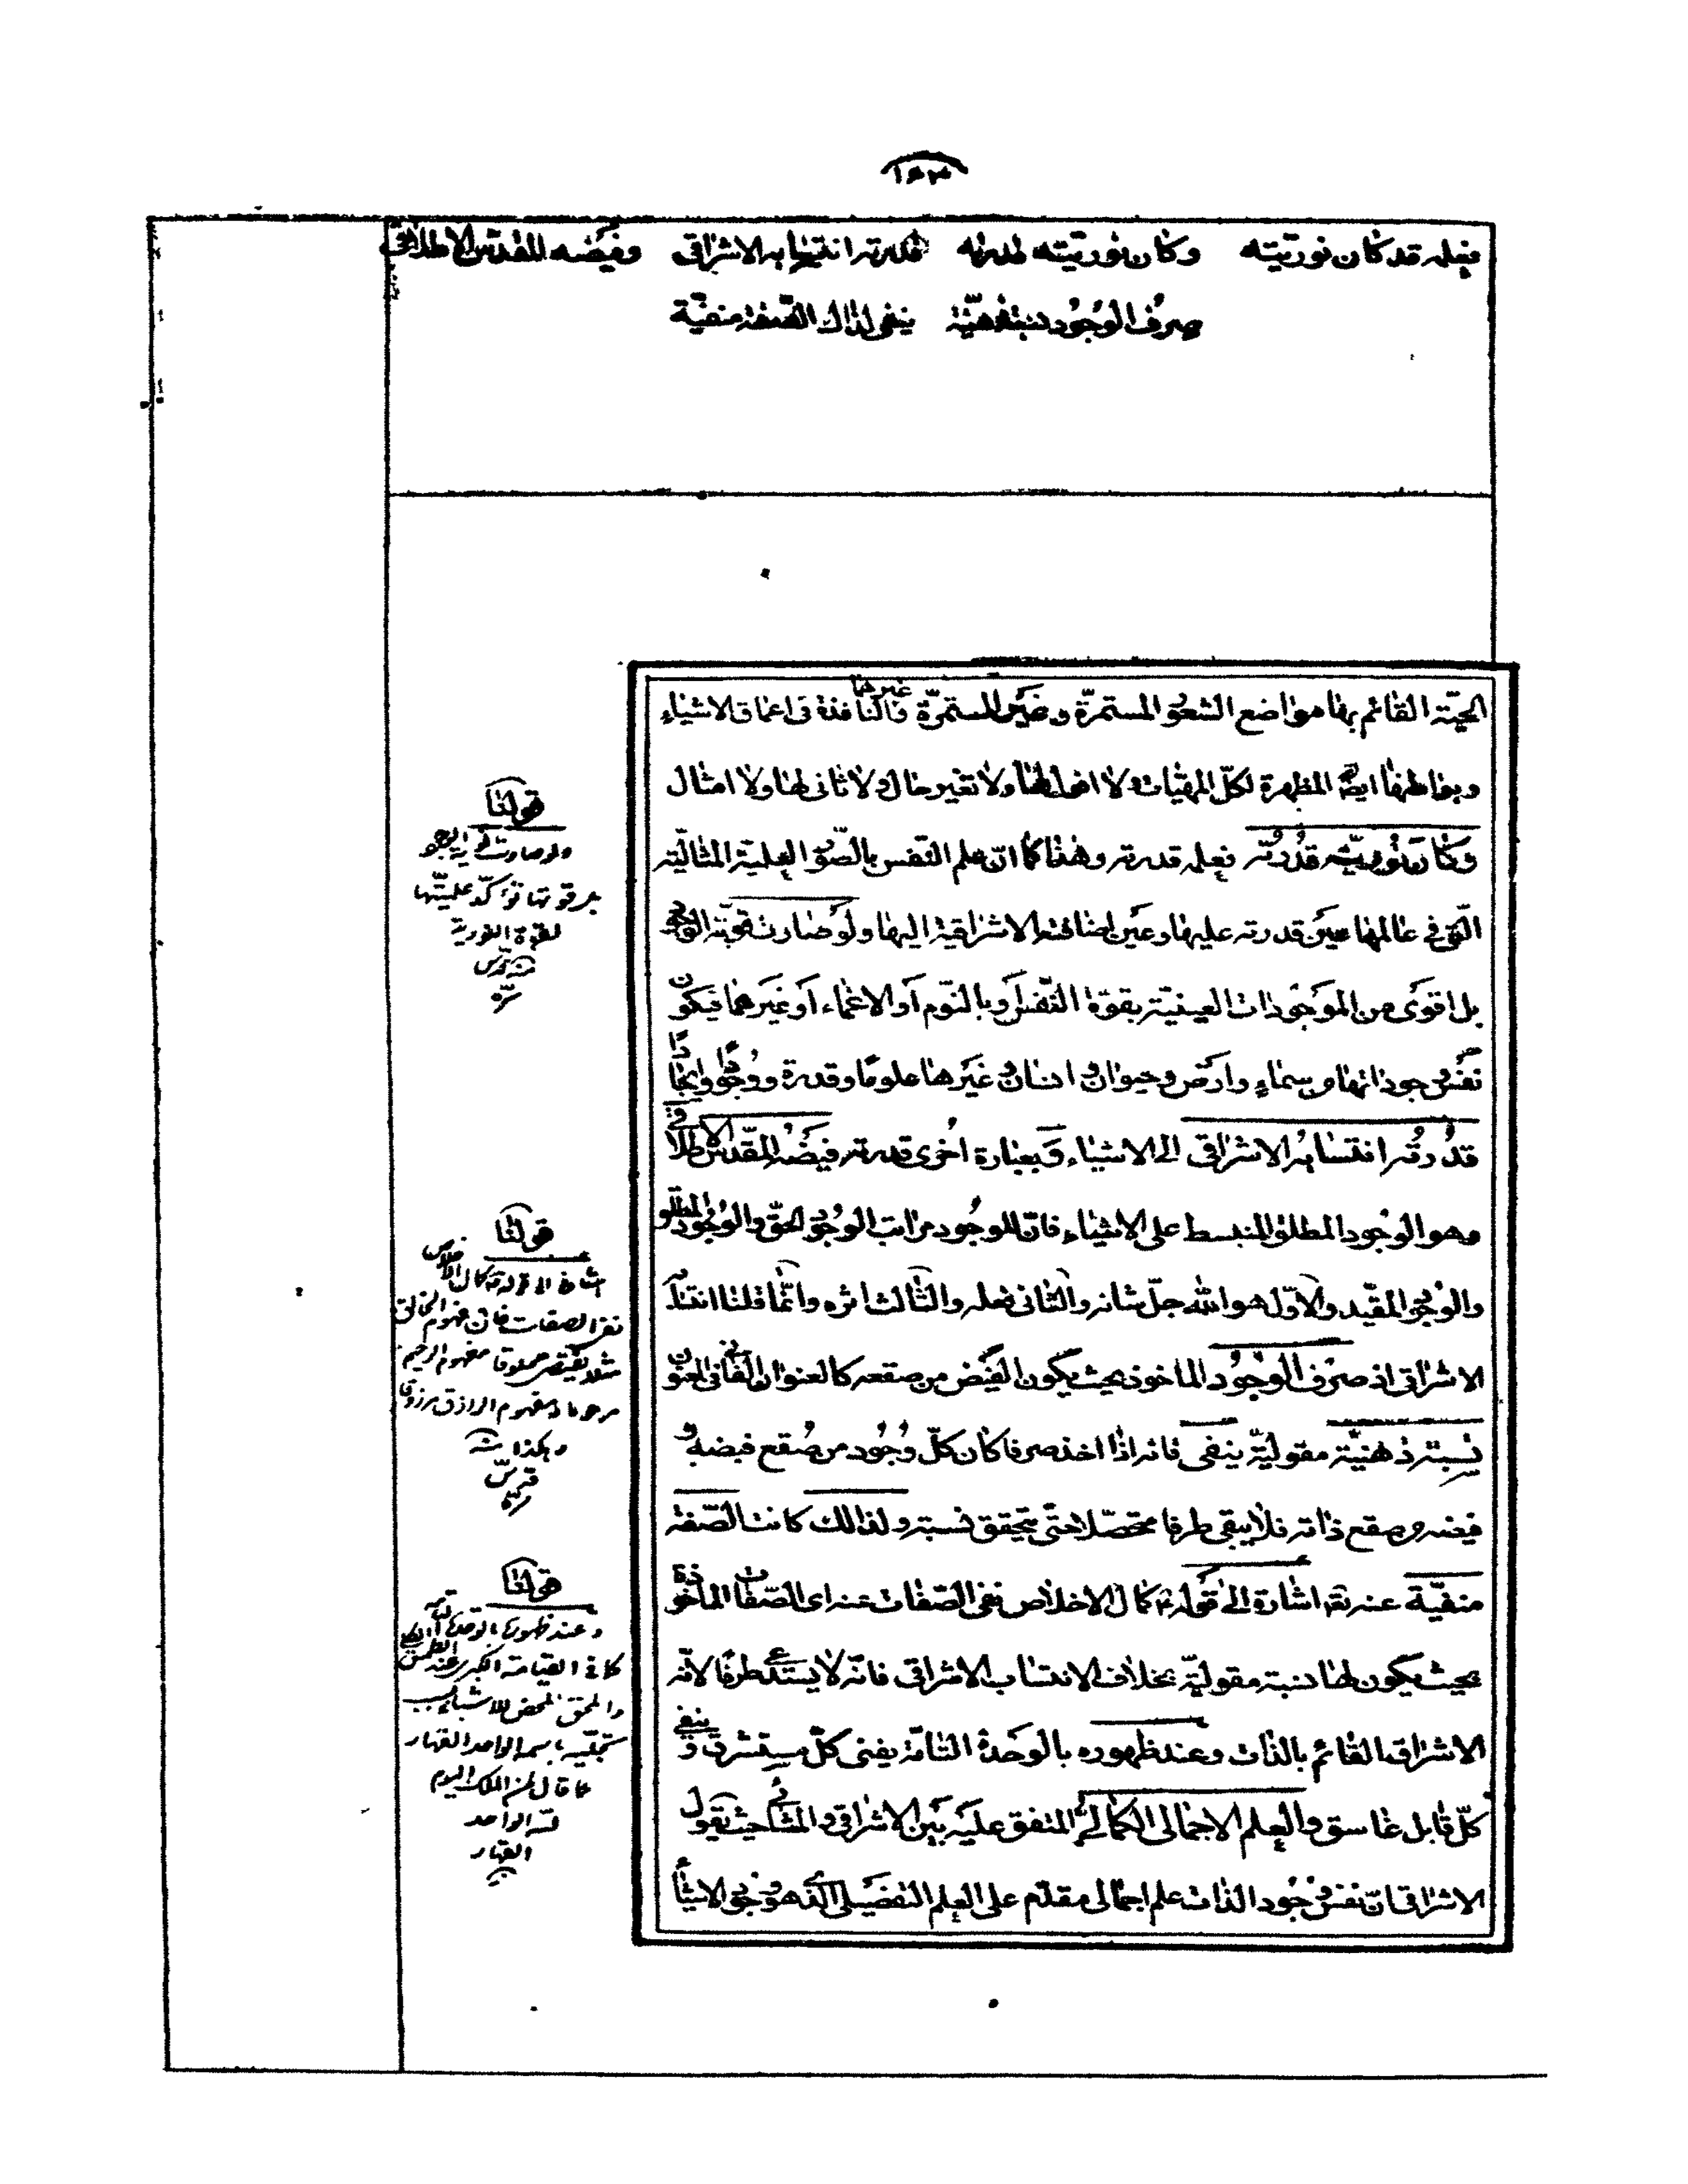 ١٦٣
فعلمه قد كان نوريّته وكان نوريّته قدرته قدرته انتسابه الاشراقى وفيضه المقدّس الاطلاقى
صرف الوجود نسبة ذهنيّة ينفى لذاك الصّفة منفيّة
الحيّة القائم بها مواضع الشعور المستمرّة وغير المستمرّة والنافذة فى اعماق الاشياء
غيرها
وبواطنها ايضا المظهرة لكلّ المهيّات ولا افول لها ولا تغير حال ولا ثانى لها ولا امثال
وكان نوريّته قدرته فعلمه قدرته وهذا كما انّ علم النفس بالصّور العلمية المثاليّة
الّتى فى عالمها عين قدرته عليها وعين اضافته الاشراقية اليها ولو صارت قويّة الوجود
بل اقوى من الموجودات العينيّة بقوة النّفس أو بالنّوم أو الاغماء أو غيرهما فيكون
نفس وجوداتها من سماء وارض وحيوان وانسان وغيرها علوما وقدرة ووجودا وايجادا
قدرته انتسابه الاشراقى الى الاشياء وبعبارة اخرى قدرته فيضه المقدّس الاطلاقى
وهو الوجود المطلق المنبسط على الاشياء فانّ للوجود مراتب الوجود الحقّ والوجود المطلق
والوجود المقيد والاوّل هو الله جلّ شانه والثّانى فعله والثّالث اثره وانّما قلنا انتسابه
الاشراقى اذ صرف الوجود الماخوذ بحيث يكون الفيض من صقعه كالعنوان الفانى فى المعنون
نسبة ذهنيّة مقوليّة ينفى فانه اذا اخذ صرفا كان كلّ وجود من صقع فيضه و
فيضه من صقع ذاته فلا يبقى طرفا متحصّلا حتّى يتحقق نسبة ولذلك كانت الصّفة
منفيّة عنه تعالى اشارة الى قوله ع كمال الاخلاص نفى الصّفات عنه اى الصّفات الماخوذة
بحيث يكون لها نسبة مقوليّة بخلاف الانتساب الاشراقى فانّه لا يستدعى طرفا لانّه
الاشراق القائم بالذات وعند ظهوره بالوحدة التّامّة يفنى كلّ مستشرق وينفى
كلّ قابل غاسق والعلم الاجمالى الكمالى المتفق عليه بين الاشراقى والمشائى حيث يقول
الاشراقى انّ نفس وجود الذات علم اجمالى مقدّم على العلم التفضيلى الّذى هو وجود الاشياء
قولنا
ولو صارت قوية الوجود
بقوتها تؤكّد علميّتها
لقوة النورية
منه قدّس
سرّه
قولنا
اشارة الى قوله كمال الاخلاص
نفى الصفات فان مفهوم الخالق
مثلا يقتضى مخلوقا ومفهوم الرحيم
مرحوما ومفهوم الرازق مرزوقا
وهكذا منه
قدّس
سرّه
قولنا
وعند ظهوره بالوحدة التامة
كما فى القيامة الكبرى عند الطمس
والمحق المحض للاشياء
بتجلّيه باسم الواحد القهار
كما قال لمن الملك اليوم
لله الواحد
القهار